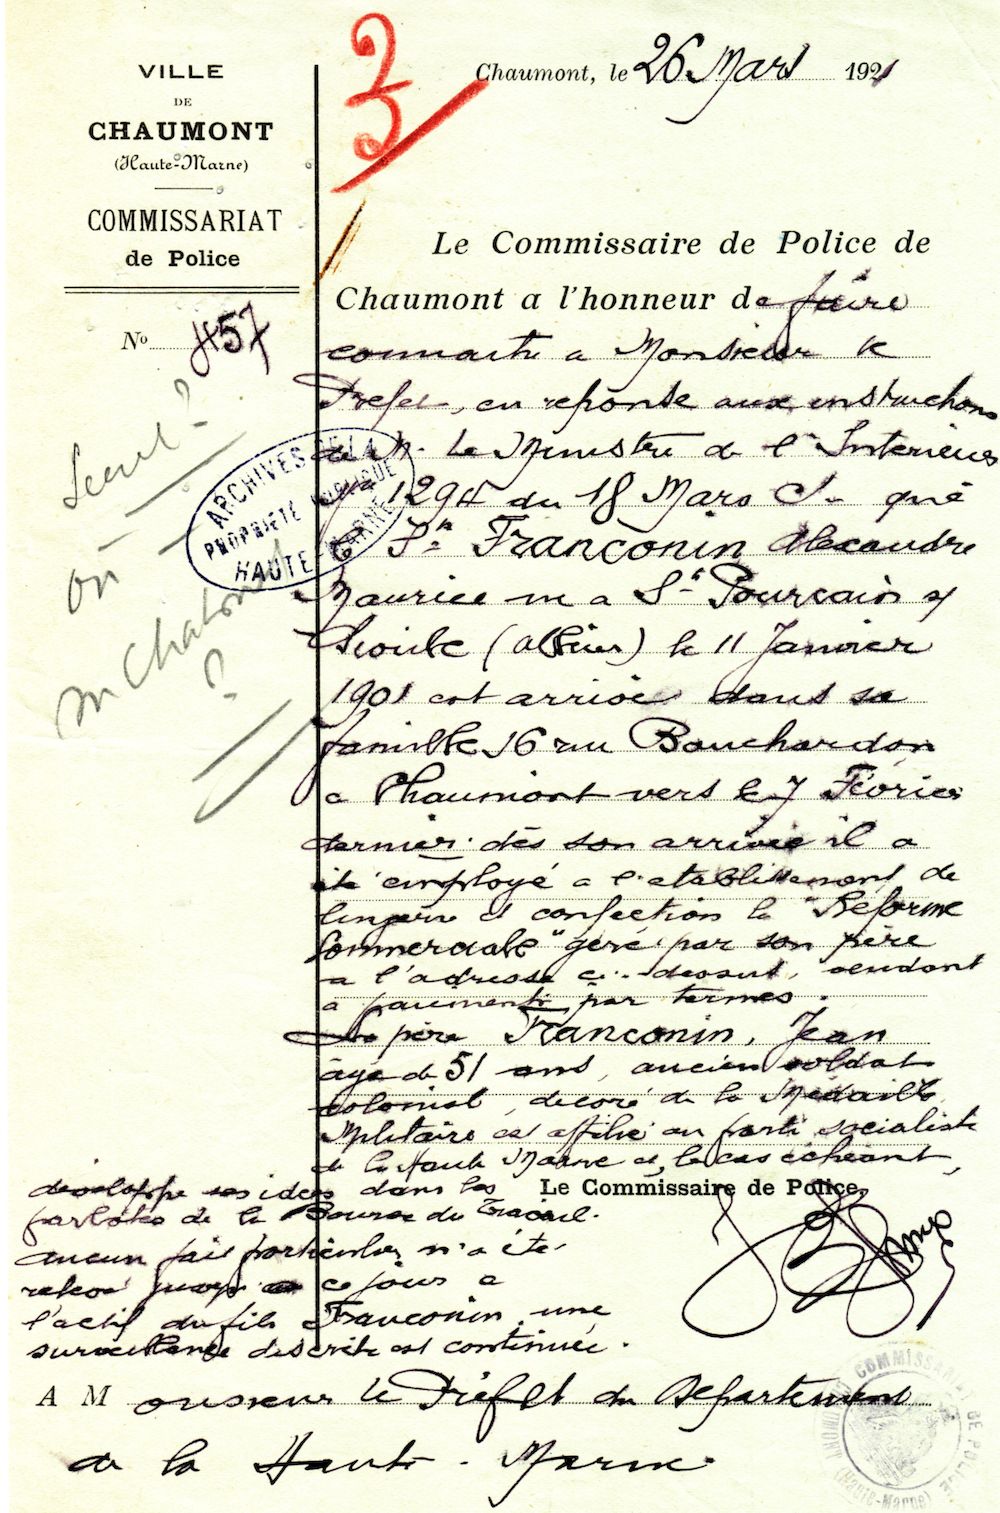 VILLE
DE
CHAUMONT
(Haute-Marne)
COMMISSARIAT
de Police
No 457
3
Chaumont, le 26 Mars 1921
Le Commissaire de Police de
Chaumont a l'honneur de faire
connaitre a Monsieur le
Prefet, en reponse aux instructions
de M. le Ministre de l'Interieur
1294 du 18 Mars Ct que
le Sr Franconin Alexandre
Maurice né a St Pourçain s/
Sioule (Allier) le 11 Janvier
1901 est arrivé dans sa
famille 16 rue Bouchardon
a Chaumont vers le 7 Février
dernier. dès son arrivée il a
été employé a l'etablissement de
lingerie et confection la "Réforme
Commerciale" géré par son père
a l'adresse ci-dessus, vendant
a paiements par termes.
Le père Franconin, Jean
âgé de 51 ans, ancien soldat
colonial, decoré de la Médaille
Militaire est affilié au parti socialiste
de la Haute Marne et, le cas échéant,
développe ses idées dans les
parlotes de la Bourse du Travail.
aucun fait particulier n'a été
relevé jusqu'a ce jour a
l'actif du fils Franconin, une
surveillance discrète est continuée.
Le Commissaire de Police,
A Monsieur le Préfet du Département
de la Haute-Marne
ARCHIVES DE LA
PROPRIÉTÉ PUBLIQUE
HAUTE-MARNE
ou
M Chaton
?
COMMISSARIAT DE POLICE
(Haute-Marne)